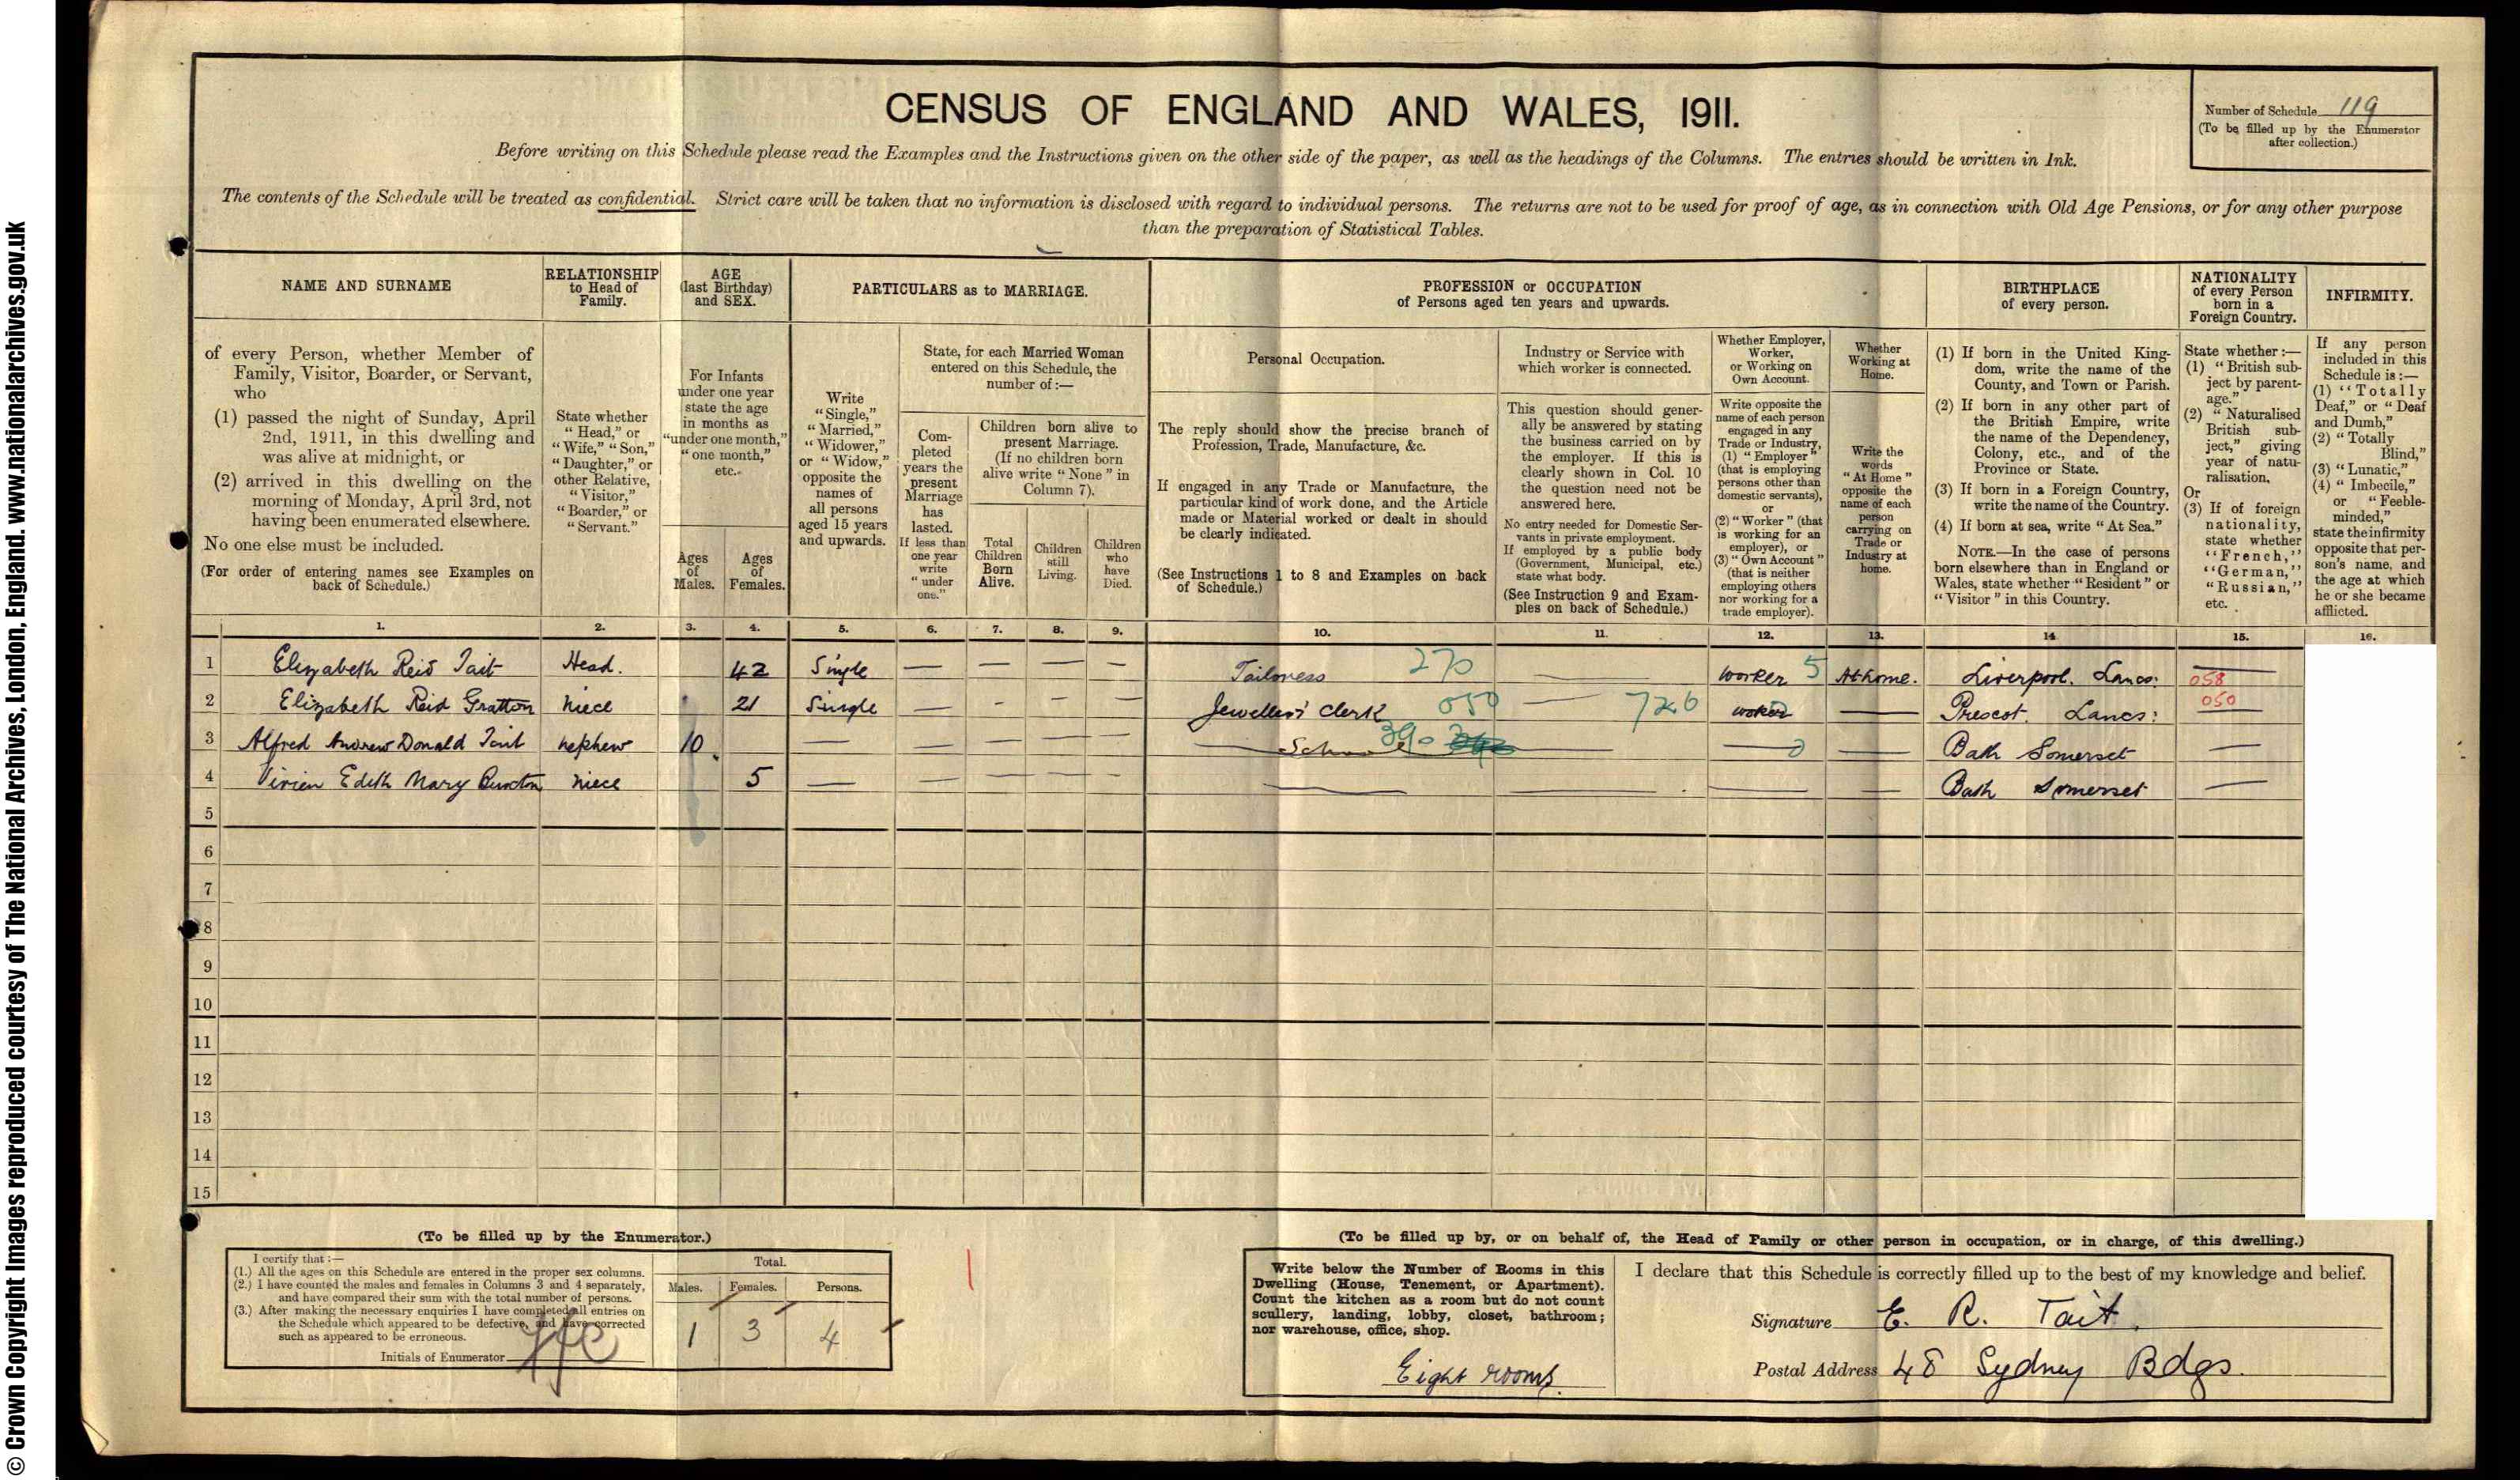 © Crown Copyright Images reproduced courtesy of The National Archives, London, England. www.nationalarchives.gov.uk
CENSUS OF ENGLAND AND WALES, 1911.
Number of Schedule 119
(To be filled up by the Enumerator
after collection.)
Before writing on this Schedule please read the Examples and the Instructions given on the other side of the paper, as well as the headings of the Columns. The entries should be written in Ink.
The contents of the Schedule will be treated as confidential. Strict care will be taken that no information is disclosed with regard to individual persons. The returns are not to be used for proof of age, as in connection with Old Age Pensions, or for any other purpose
than the preparation of Statistical Tables.
NAME AND SURNAME
of every Person, whether Member of
Family, Visitor, Boarder, or Servant,
who
(1) passed the night of Sunday, April
2nd, 1911, in this dwelling and
was alive at midnight, or
(2) arrived in this dwelling on the
morning of Monday, April 3rd, not
having been enumerated elsewhere.
No one else must be included.
(For order of entering names see Examples on
back of Schedule.)
RELATIONSHIP
to Head of
Family.
State whether
"Head," or
"Wife," "Son,"
"Daughter," or
other Relative,
"Visitor,"
"Boarder," or
"Servant."
AGE
(last Birthday)
and SEX.
For Infants
under one year
state the age
in months as
"under one month,"
"one month,"
etc.
Ages
of
Males.
Ages
of
Females.
PARTICULARS as to MARRIAGE.
Write
"Single,"
"Married,"
"Widower,"
or "Widow,"
opposite the
names of
all persons
aged 15 years
and upwards.
State, for each Married Woman
entered on this Schedule, the
number of:—
Com-
pleted
years the
present
Marriage
has
lasted.
If less than
one year
write
"under
one."
Children born alive to
present Marriage.
(If no children born
alive write "None" in
Column 7).
Total
Children
Born
Alive.
Children
still
Living.
Children
who
have
Died.
PROFESSION or OCCUPATION
of Persons aged ten years and upwards.
Personal Occupation.
The reply should show the precise branch of
Profession, Trade, Manufacture, &c.
If engaged in any Trade or Manufacture, the
particular kind of work done, and the Article
made or Material worked or dealt in should
be clearly indicated.
(See Instructions 1 to 8 and Examples on back
of Schedule.)
Industry or Service with
which worker is connected.
This question should gener-
ally be answered by stating
the business carried on by
the employer. If this is
clearly shown in Col. 10
the question need not be
answered here.
No entry needed for Domestic Ser-
vants in private employment.
If employed by a public body
(Government, Municipal, etc.)
state what body.
(See Instruction 9 and Exam-
ples on back of Schedule.)
Whether Employer,
Worker,
or Working on
Own Account.
Write opposite the
name of each person
engaged in any
Trade or Industry,
(1) "Employer"
(that is employing
persons other than
domestic servants),
or
(2) "Worker" (that
is working for an
employer), or
(3) "Own Account"
(that is neither
employing others
nor working for a
trade employer).
Whether
Working at
Home.
Write the
words
"At Home"
opposite the
name of each
person
carrying on
Trade or
Industry at
home.
BIRTHPLACE
of every person.
(1) If born in the United King-
dom, write the name of the
County, and Town or Parish.
(2) If born in any other part of
the British Empire, write
the name of the Dependency,
Colony, etc., and of the
Province or State.
(3) If born in a Foreign Country,
write the name of the Country.
(4) If born at sea, write "At Sea."
NOTE.—In the case of persons
born elsewhere than in England or
Wales, state whether "Resident" or
"Visitor" in this Country.
NATIONALITY
of every Person
born in a
Foreign Country.
State whether:—
(1) "British sub-
ject by parent-
age."
(2) "Naturalised
British sub-
ject," giving
year of natu-
ralisation.
Or
(3) If of foreign
nationality,
state whether
"French,"
"German,"
"Russian,"
etc.
INFIRMITY.
If any person
included in this
Schedule is:—
(1) "Totally
Deaf," or "Deaf
and Dumb,"
(2) "Totally
Blind,"
(3) "Lunatic,"
(4) "Imbecile,"
or "Feeble-
minded,"
state the infirmity
opposite that per-
son's name, and
the age at which
he or she became
afflicted.
1. 2. 3. 4. 5. 6. 7. 8. 9. 10. 11. 12. 13. 14 15. 16.
1 Elizabeth Reid Tait Head. 42 Single — — — — Tailoress 270 — Worker 5 At home. Liverpool. Lancs: 058
2 Elizabeth Reid Gratton Niece 21 Single — - – — Jewellers' Clerk 050 — 726 worker — Prescot. Lancs: 050
3 Alfred Andrew Donald Tait nephew 10 — — — — — School 390 — 0 — Bath Somerset —
4 Vivien Edith Mary Burton Niece 5 — — — — — — — — — Bath Somerset —
5
6
7
8
9
10
11
12
13
14
15
(To be filled up by the Enumerator.)
I certify that:—
(1.) All the ages on this Schedule are entered in the proper sex columns.
(2.) I have counted the males and females in Columns 3 and 4 separately,
and have compared their sum with the total number of persons.
(3.) After making the necessary enquiries I have completed all entries on
the Schedule which appeared to be defective, and have corrected
such as appeared to be erroneous.
Initials of Enumerator
Total.
Males. Females. Persons.
1 3 4
(To be filled up by, or on behalf of, the Head of Family or other person in occupation, or in charge, of this dwelling.)
Write below the Number of Rooms in this
Dwelling (House, Tenement, or Apartment).
Count the kitchen as a room but do not count
scullery, landing, lobby, closet, bathroom;
nor warehouse, office, shop.
Eight rooms
I declare that this Schedule is correctly filled up to the best of my knowledge and belief.
Signature E. R. Tait.
Postal Address 48 Sydney Bdgs.